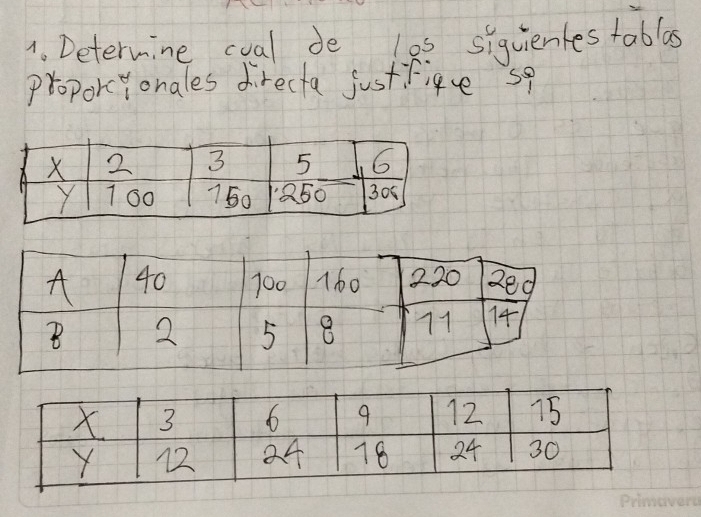 1. Determine cual de los siguientes tablas
proporcionales directa justifique si
X 2 3 5 6
Y 100 150 250 300
A 40 100 160 220 280
B 2 5 8 11 14
X 3 6 9 12 15
Y 12 24 18 24 30
Primavera